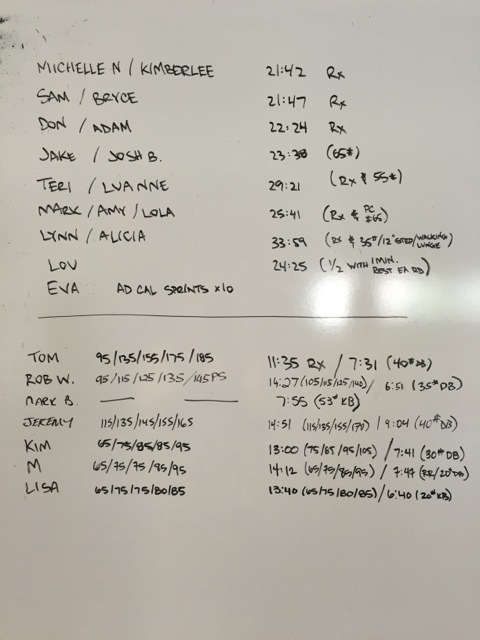 MICHELLE N / KIMBERLEE 21:42 Rx
SAM / BRYCE 21:47 Rx
DON / ADAM 22:24 Rx
JAKE / JOSH B. 23:38 (65#)
TERI / LUANNE 29:21 (Rx & 55#)
MARK / AMY / LOLA 25:41 (Rx & PC #65)
LYNN / ALICIA 33:59 (Rx & 35#/12" STEP/WALKING LUNGE)
LOU 24:25 (1/2 WITH 1 MIN. REST EA RD)
EVA AD CAL SPRINTS x10
TOM 95/135/155/175/185 11:35 Rx / 7:31 (40#DB)
ROB W. 95/115/125/135/145PS 14:27 (105/115/125/140) / 6:51 (35#DB)
MARK B. — — 7:55 (53# KB)
JEREMY 115/135/145/155/165 14:51 (115/135/155/170) / 9:04 (40#DB)
KIM 65/75/85/85/95 13:00 (75/85/95/105) / 7:41 (30#DB)
M 65/75/75/95/95 14:12 (65/75/85/95) / 7:47 (RR/20#DB)
LISA 65/75/75/80/85 13:40 (65/75/80/85) / 6:40 (20#KB)